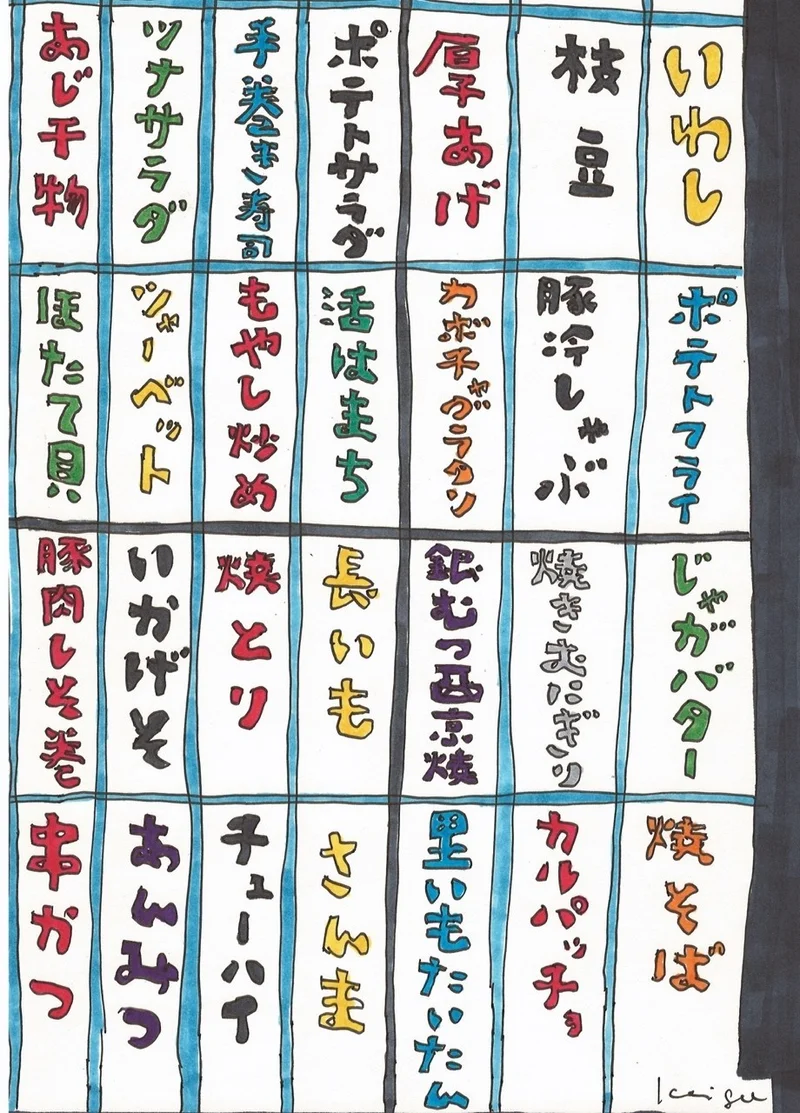 いわし
枝豆
厚あげ
ポテトサラダ
手巻き寿司
ツナサラダ
あじ干物
ポテトフライ
豚冷しゃぶ
カボチャグラタン
活はまち
もやし炒め
シャーベット
ほたて貝
じゃがバター
焼きおにぎり
銀むつ西京焼
長いも
焼とり
いかげそ
豚肉しそ巻
焼そば
カルパッチョ
里いもたいたん
さんま
チューハイ
あんみつ
串かつ